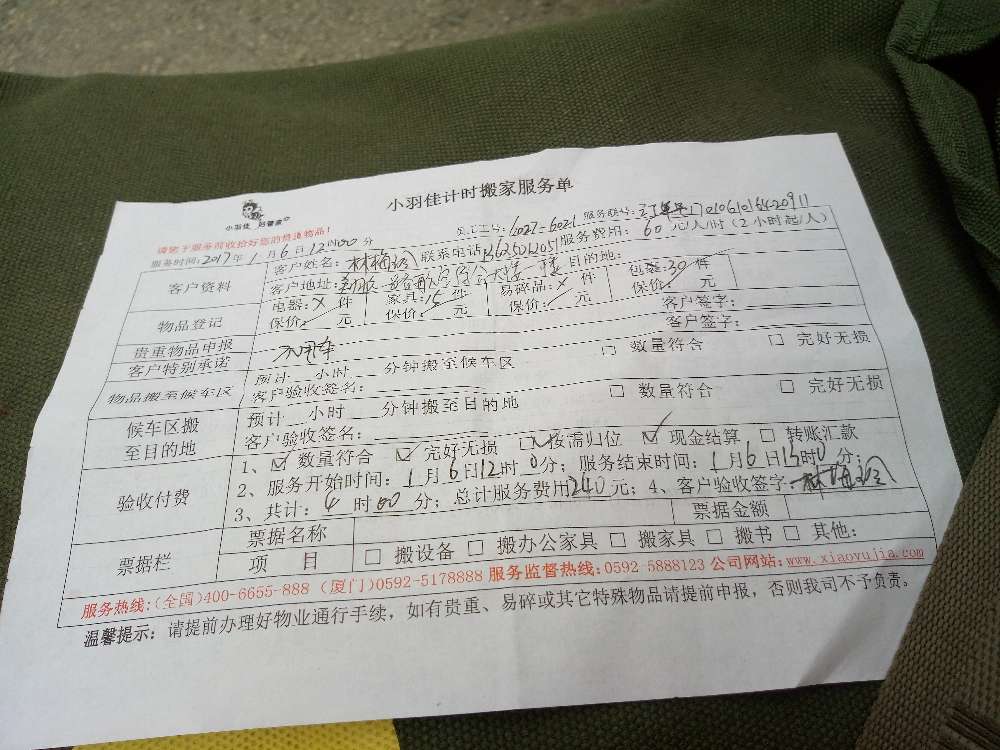 小羽佳计时搬家服务单
小羽佳 好管家
请您于服务前收拾好您的搬送物品!
服务时间:2017年1月6日12时00分
员工工号: 服务联号: 服务费用: 60元/人/时(2小时起/人)
客户资料
客户姓名: 联系电话
客户地址: 目的地:
物品登记
电器:X件 家具:15件 易碎品:X件 包袋:30件
保价: 元 保价: 元 保价: 元 保价: 元
贵重物品申报 客户签字:
客户特别承诺 客户签字:
物品搬至候车区
预计 小时 分钟搬至候车区 □ 数量符合 □ 完好无损
客户验收签名:
候车区搬至目的地
预计 小时 分钟搬至目的地 □ 数量符合 □ 完好无损
客户验收签名:
验收付费
1、☑ 数量符合 ☑ 完好无损 ☑ 按需归位 ☑ 现金结算 □ 转账汇款
2、服务开始时间:1月6日12时0分;服务结束时间:1月6日 时0分;
3、共计:4时00分;总计服务费用240元;4、客户验收签字:
票据栏
票据名称 票据金额
项 目 □ 搬设备 □ 搬办公家具 □ 搬家具 □ 搬书 □ 其他:
服务热线:(全国)400-6655-888 (厦门)0592-5178888 服务监督热线:0592-5888123 公司网站:www.xiaoyujia.com
温馨提示:请提前办理好物业通行手续,如有贵重、易碎或其它特殊物品请提前申报,否则我司不予负责。